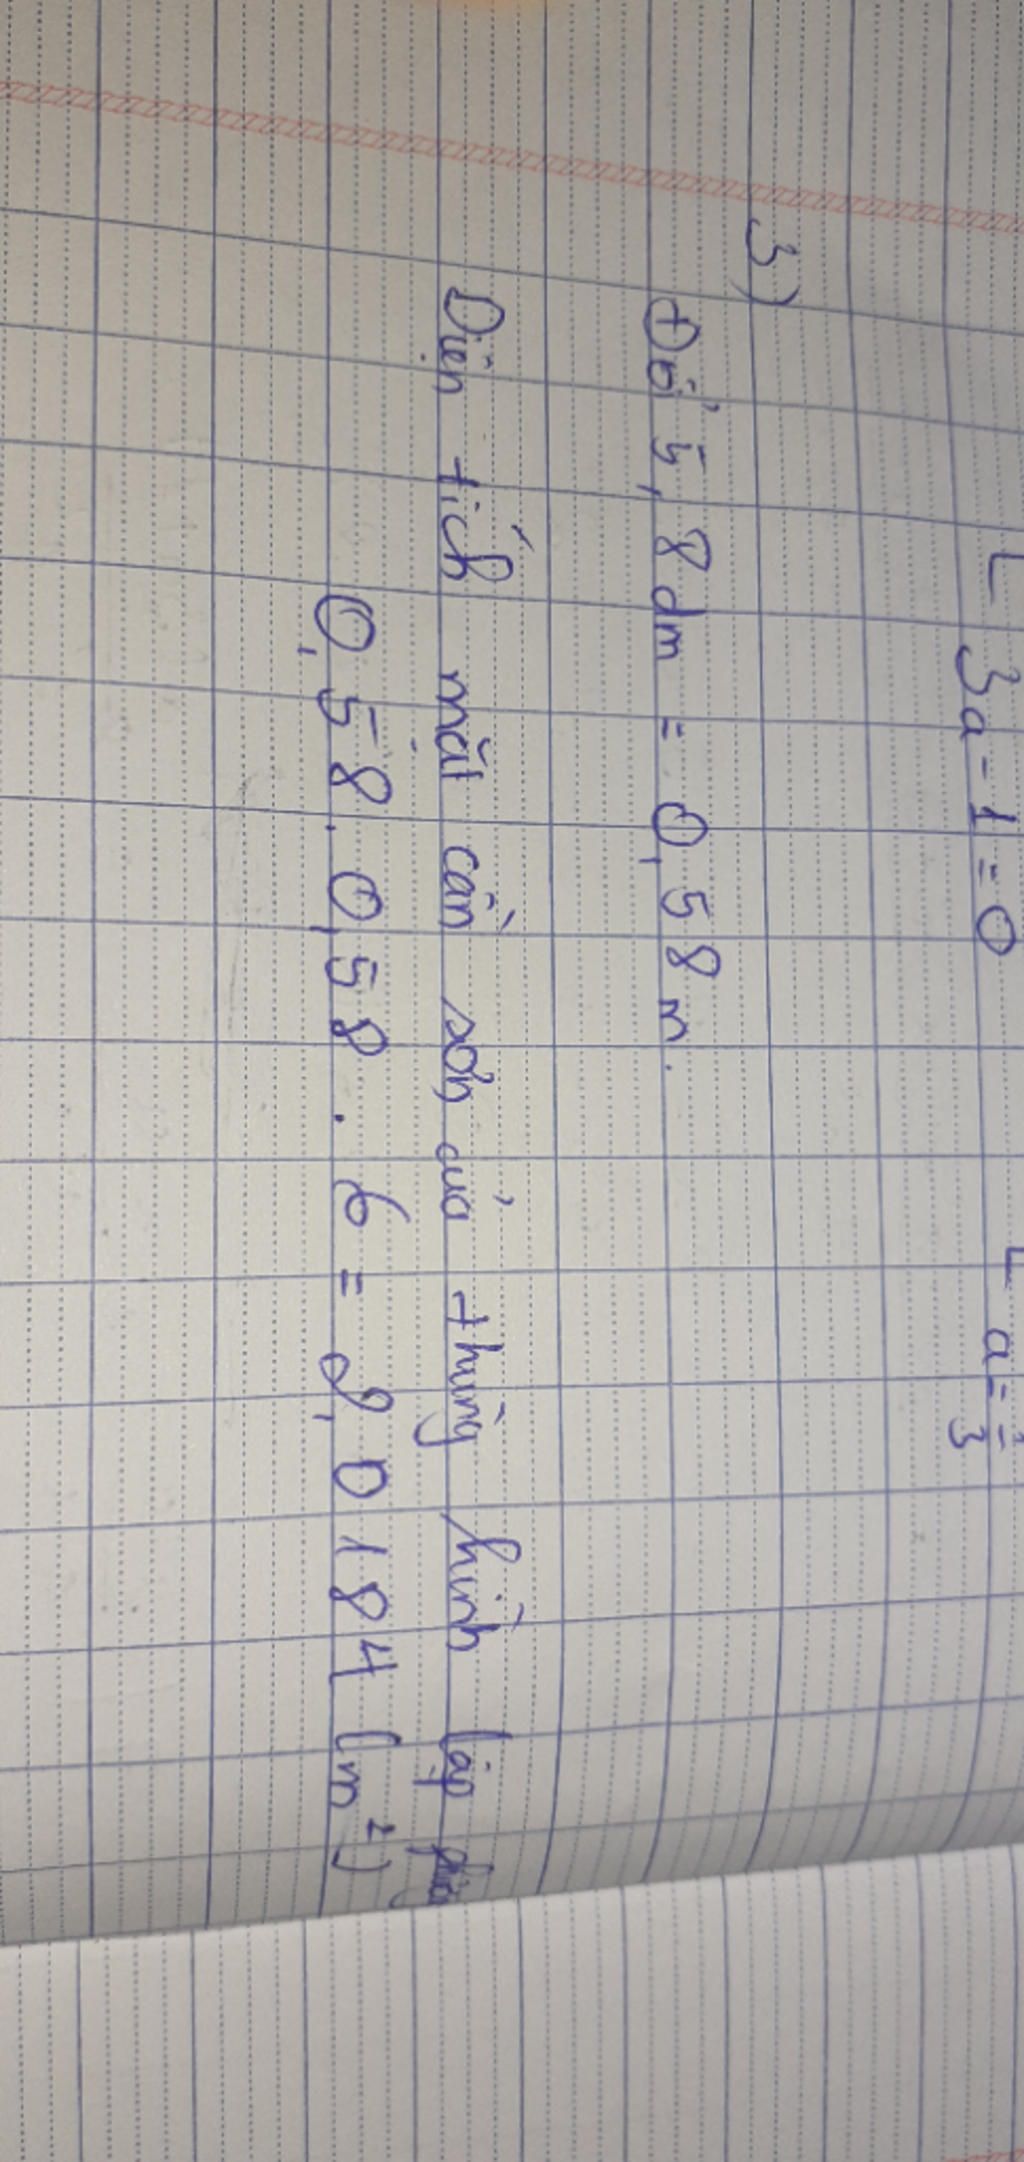 3a - 1 = 0
a = 1/3
3)
Đổi 5,8 dm = 0,58 m.
Diện tích mặt cần sơn của thùng hình lập phương
0,58 . 0,58 . 6 = 2,0184 (m²)